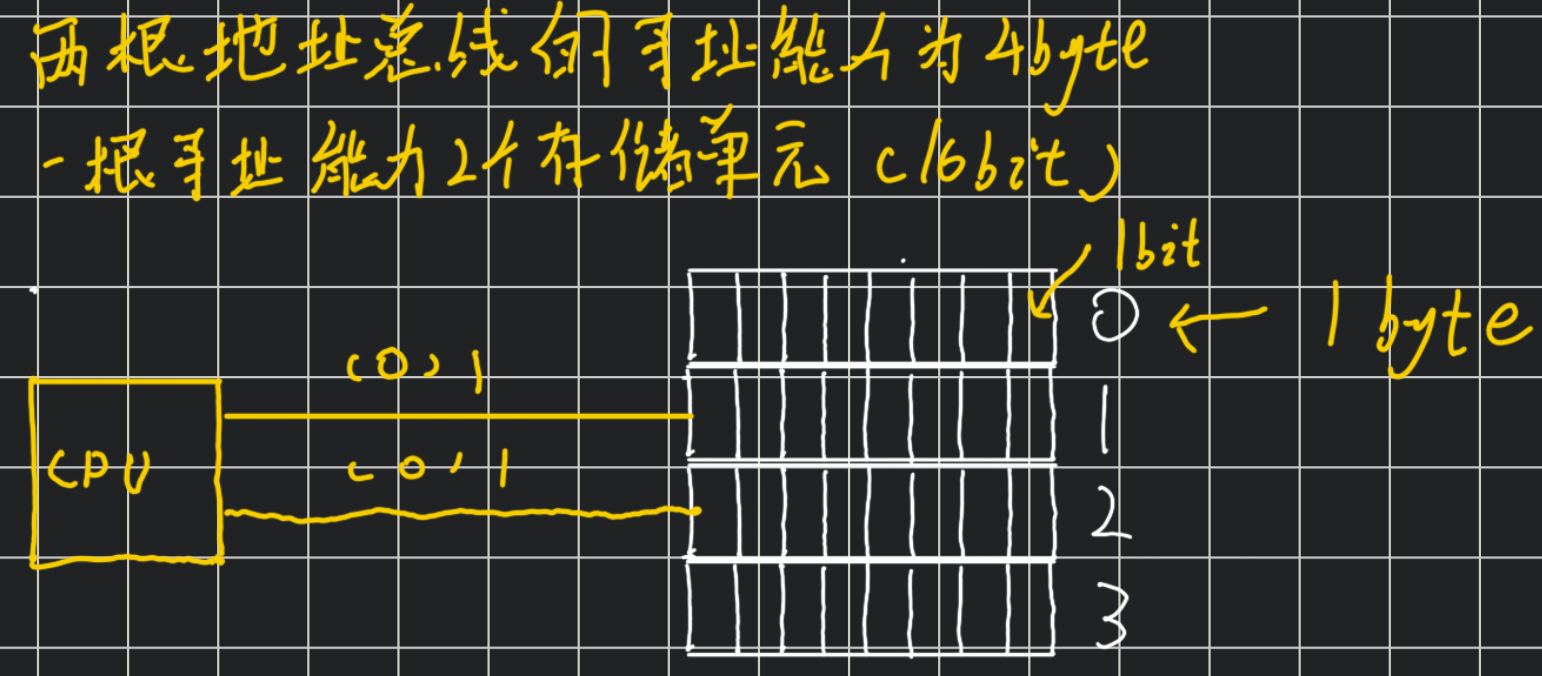 两根地址总线的寻址能力为4byte
一根寻址能力2个存储单元（16bit）
1bit
0 ← 1 byte
(0，1
CPU
(0，1
1
2
3